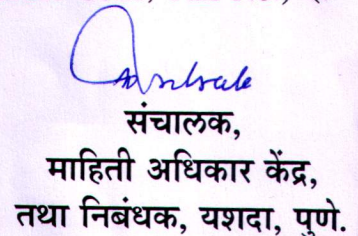 संचालक,
माहिती अधिकार केंद्र,
तथा निबंधक, यशदा, पुणे.